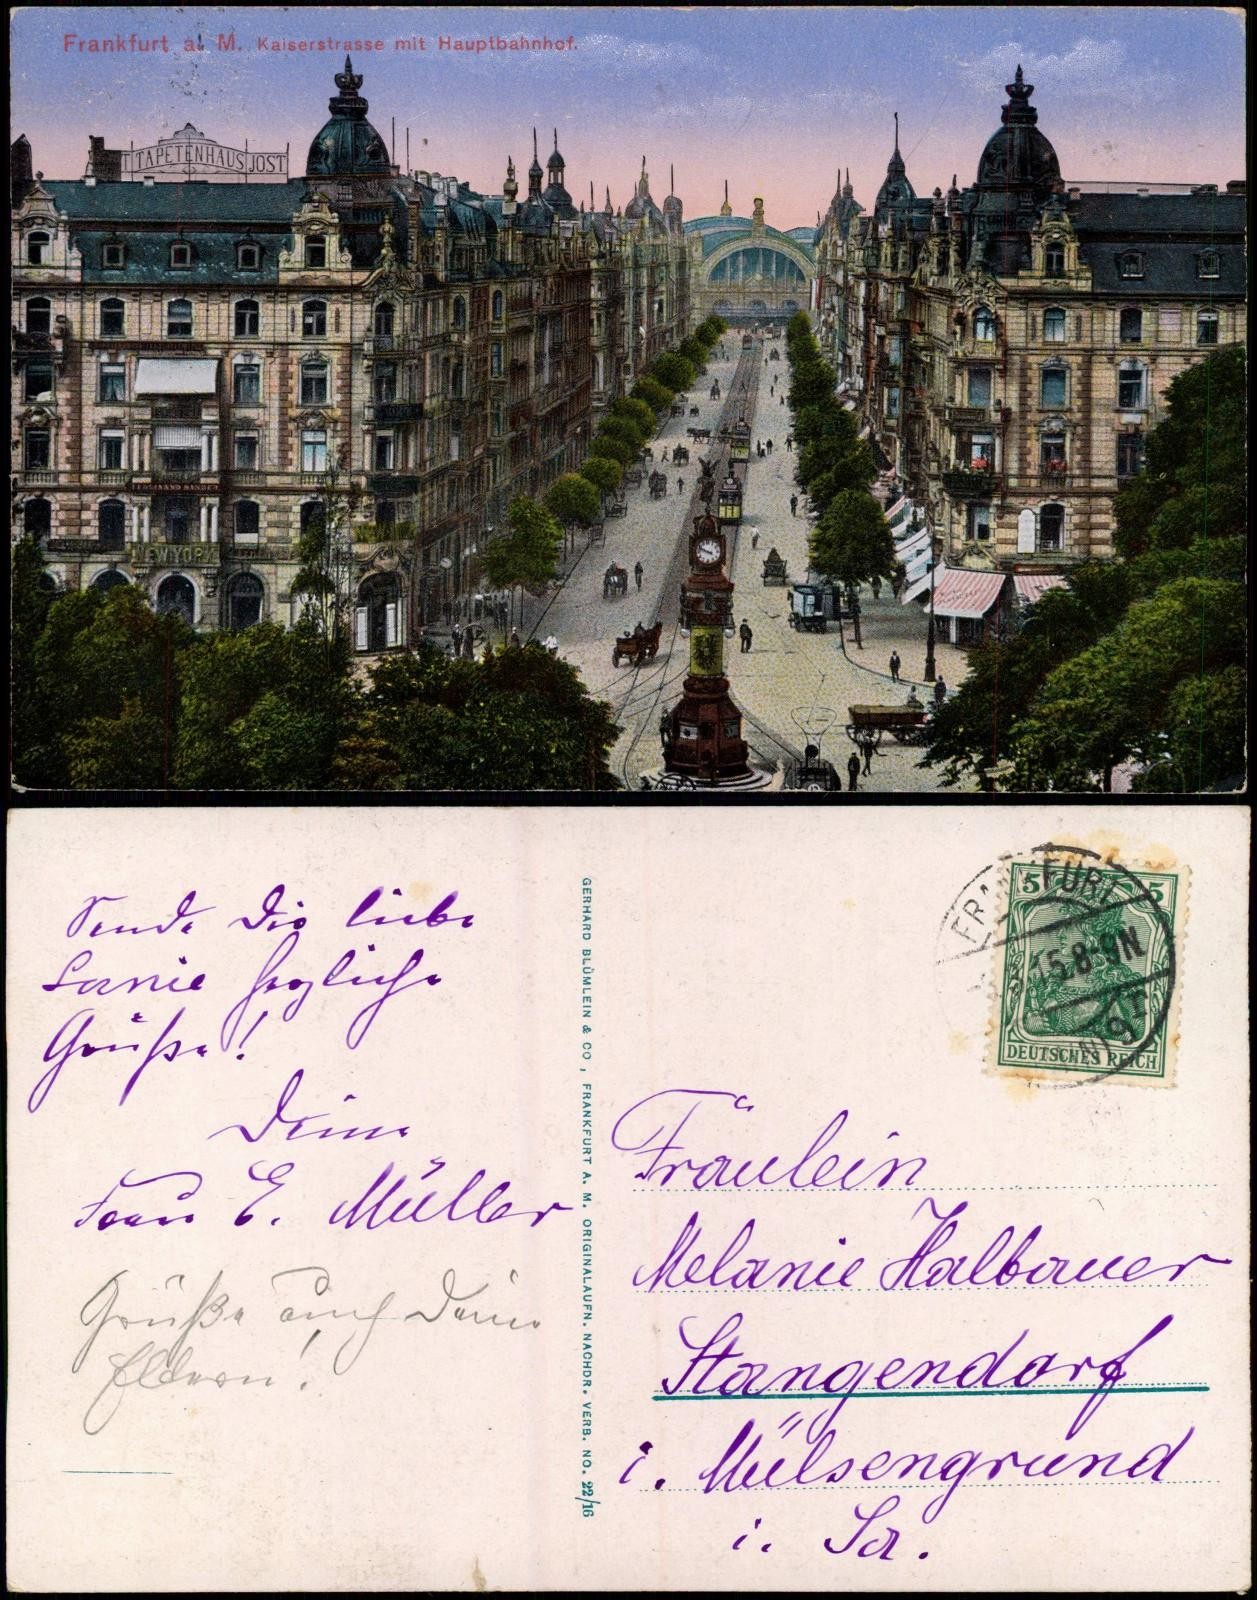 Frankfurt a. M. Kaiserstrasse mit Hauptbahnhof.
TAPETENHAUS JOST
NEW-YORK
Sende Dir liebe
Lanie herzliche
Grüße!
Deine
Frau E. Müller
Grüße auch Deine
Eltern!
GERHARD BLÜMLEIN & CO, FRANKFURT A. M. ORIGINALAUFN. NACHDR. VERB. NO. 22/16
FRANKFURT
5 5
15.8-9N
DEUTSCHES REICH
Fräulein
Melanie Halbauer
Stangendorf
i. Mülsengrund
i. Sa.